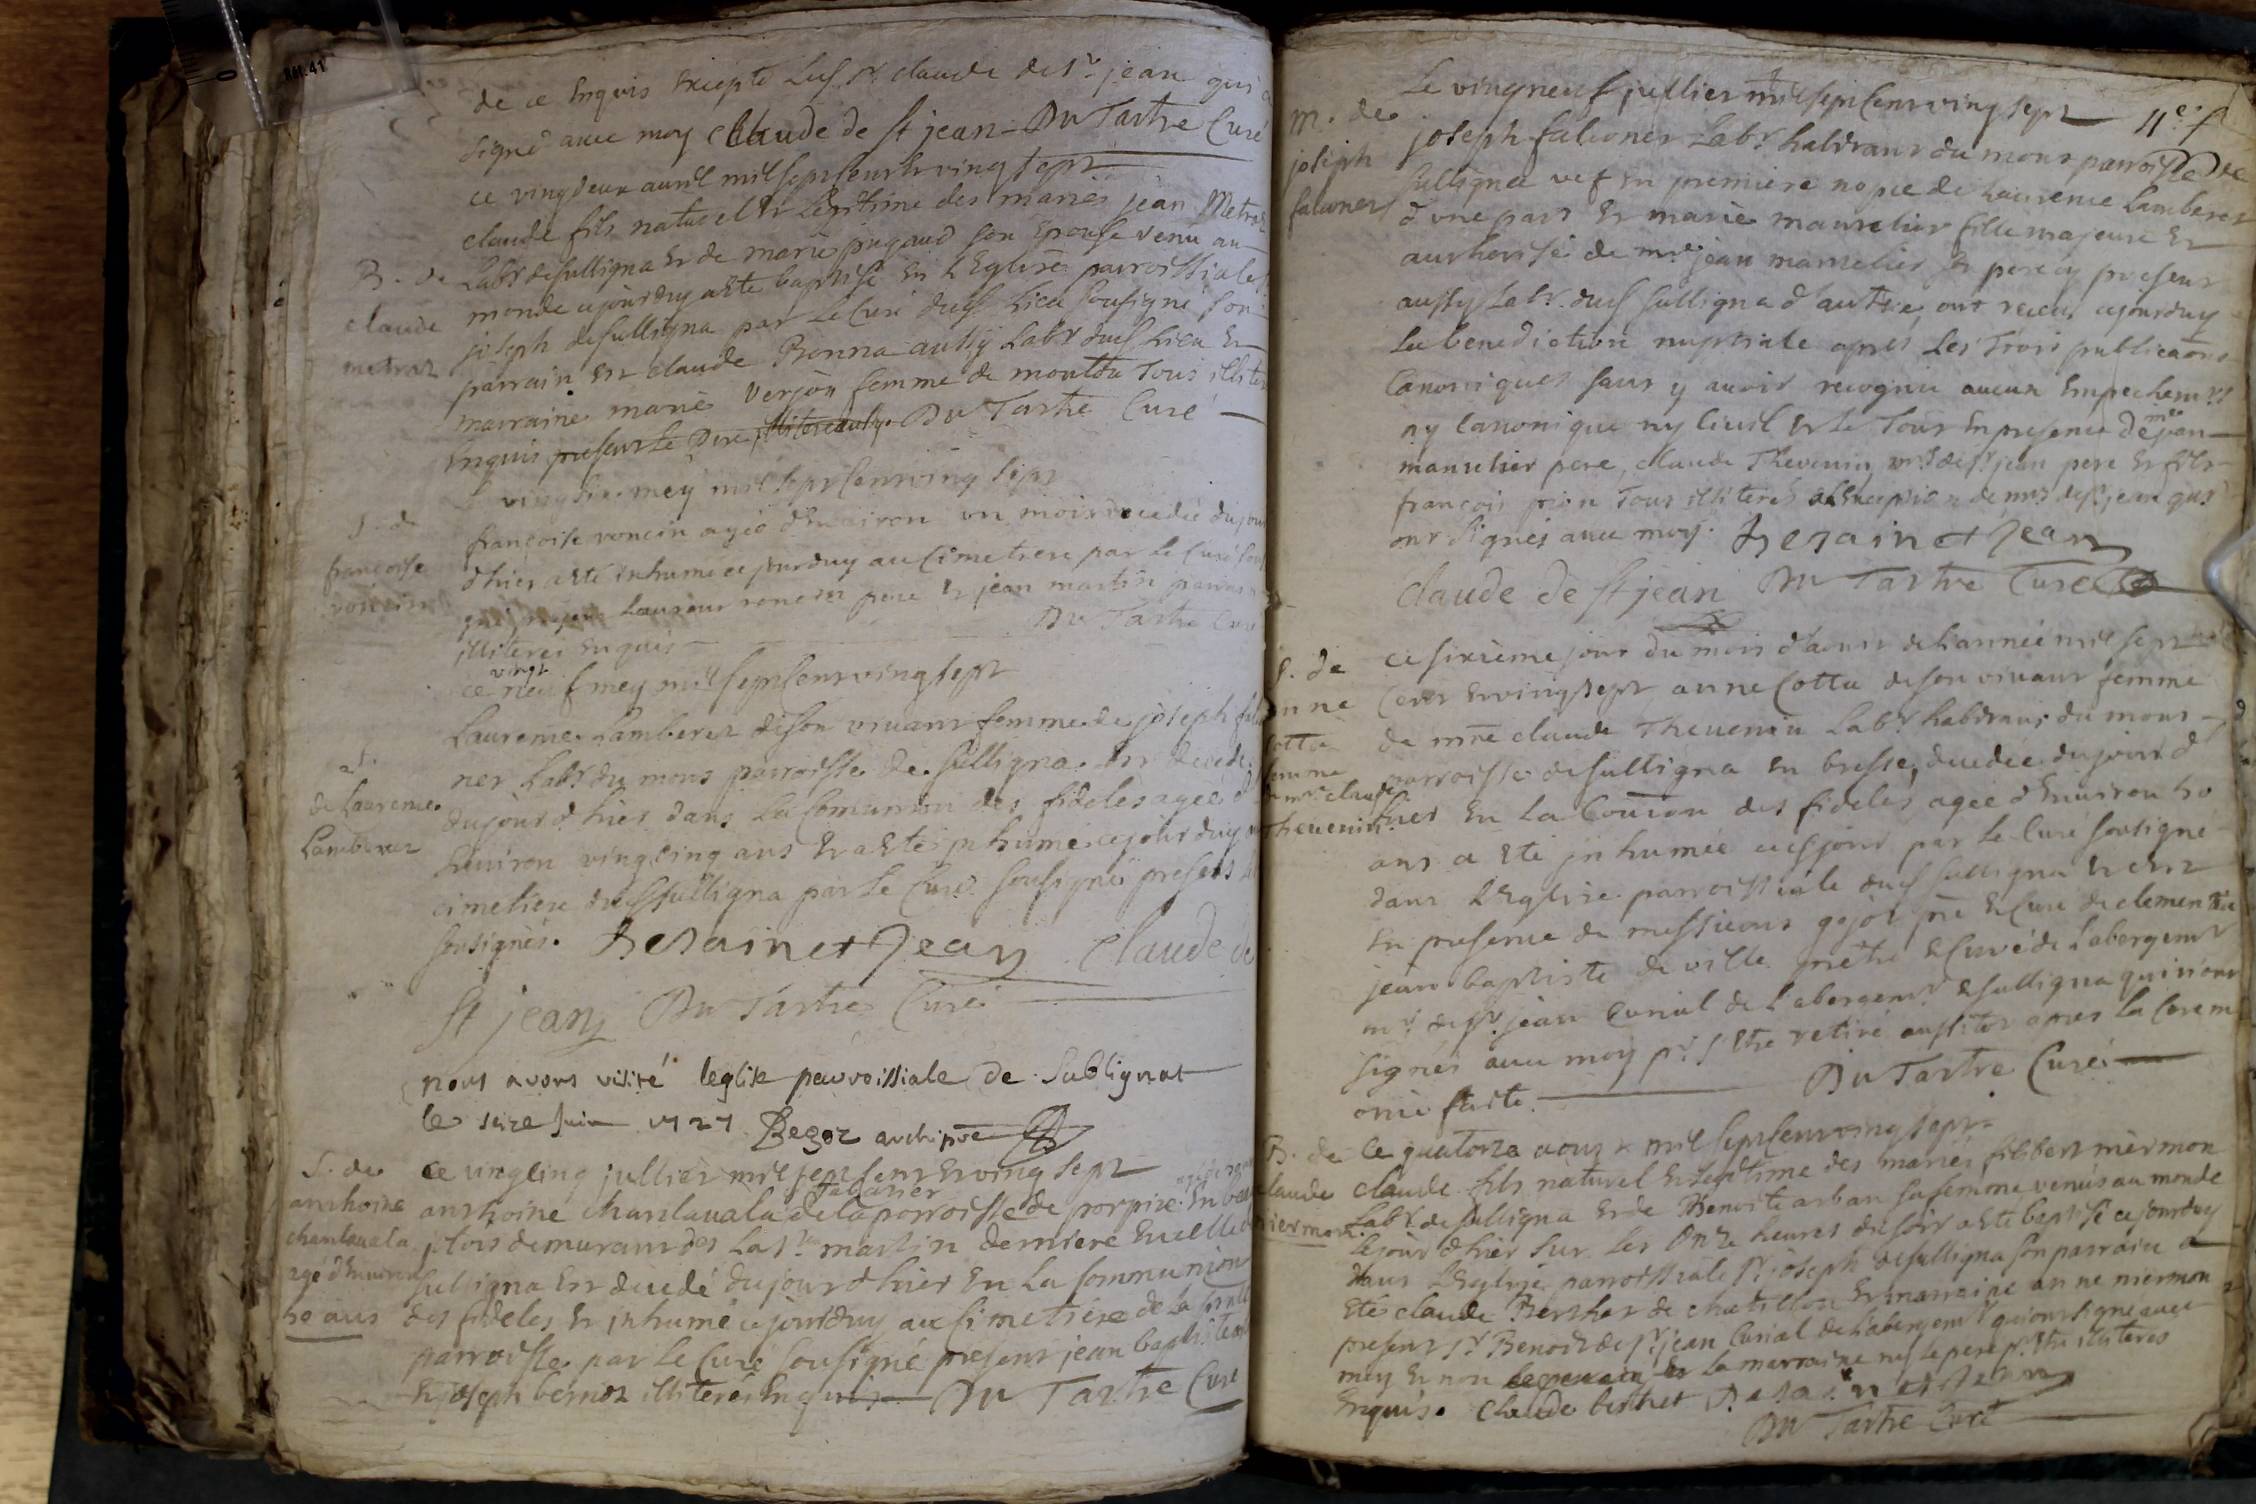 de ce enquis excepté led. sr. claude de st. jean qui a
signé avec moy claude de st jean Du Tartre Curé
ce vingdeux avril mil sept sent et ving sept
claude fils naturel et legitime des mariés jean Metraz
B. de
claude
metraz
Labr. de sulligna et de marie pugaud son epouse venu au
monde cejourduy a esté baptisé en l'Eglise parroissiale st.
joseph de sulligna par le Curé dud. Lieu sousigné son
parrain est claude Bonna aussy Labr. dud. Lieu et
marraine marie Verjon femme de monttu Tous illiteres
enquis present le Pere Du Tartre Curé
Le ving six mey mil sept cent ving sept
S. de
francoise
voncin
françoise voncin agée d'environ un mois decedée du jour
d'hier a esté inhumée cejourduy au Cimetiere par le Curé sous
pere et jean martin parrain
illiteres enquis Du Tartre Curé
ce vingt neuf mey mil sept sent ving sept
S.
de Laurence
Lamberet
Laurence Lamberet de son vivant femme de joseph falco
ner Labr. du mont parroisse de sulligna est decedé
du jour d'hier dans la Comunion des fideles agée d'
environ ving cinq ans et a esté inhumé cejourduy au
cimetiere dud. sulligna par le Curé sousigné presents les
sousignés. Desainct Jean Claude de
st jean Du Tartre Curé
nous avons visité leglise parroissiale de Sublignat
le seize Juin 1727 Begoz archiprê
S. de
anthoine
chanlavala
agé d'environ
ans
ce vingcinq jullier mil sept sent et ving sept
anthoine chanlavala de la parroisse de porpire en
demurant des la st. martin derniere en celle de
sulligna est decedé du jour d'hier en la Communion
des fideles et inhumé cejourduy au Cimetiere de la susd.
parroisse par le Curé sousigné present jean baptiste
et joseph bernoz illiterés enquis Du Tartre Curé
Le vingneuf jullier mil sept cent ving sept 11e. f
m. de
joseph
falconer
joseph falconer Labr. habitant du mont parroisse de
sullignea vef en premiere nopce de Laurence Lamberet
d'une part et marie manrelier fille majeure et
authorisé de mre. jean manrelier sr pere cy present
aussy Labr. dud. sulligna d'autre, ont receu cejourduy
la benediction nuptiale apres les trois publicaons
Canoniques sans y avoir recognu aucun empechemt.
ny canonique ny civil et le Tout en presence de mre jean
manrelier pere, claude Thevenin, mrs. de st. jean pere et fils
françois pion Tous illiterés a l'exception de mrs. de st. jean qui
ont signés avec moy. Desainct Jean
Claude de st jean Du Tartre Curé
S. de
anne
Cotta
femme
de mre. claude
Thevenin.
ce sixième jour du mois d'aoust de l'année mil sept
cent et vingsept anne Cotta de son vivant femme
de mre claude Thevenin Labr. habitant du mont
parroisse de sulligna en bresse, decedée du jour d'
hier en la Couion des fideles agee d'environ
ans a esté inhumée cejourd par le Curé sousigné
dans l'Eglise parroissiale dud. sulligna et est
en presence de messieurs gojot prê et Curé de clementia
jean baptiste deville prêtre et Curé de l'abergemt.
mr. de st. jean Curial de l'abergemt. et sulligna qui n'ont
signés avec moy pr. s'etre retiré aussitot apres la Ceremo
onie faite. Du Tartre Curé
B. de
claude
niermon.
Ce quatorze aoust mil sept sent ving sept
claude fils naturel et legitime des mariés filibert niermon
Labr. de sulligna et de Benoite arban sa femme, venu au monde
le jour d'hier sur les Onze heures du soir a esté baptisé cejourduy
dans l'Eglise parroissiale st. joseph de sulligna son parrain a
eté claude Berthet de chatillon et marraine anne niermon
present sr. Benoit de st. jean Curial de l'abergemt. qui ont signé avec
moy et non la marraine ny le pere pr. etre illiterés
enquis. Claude berthet Desainct Jean
Du Tartre Curé